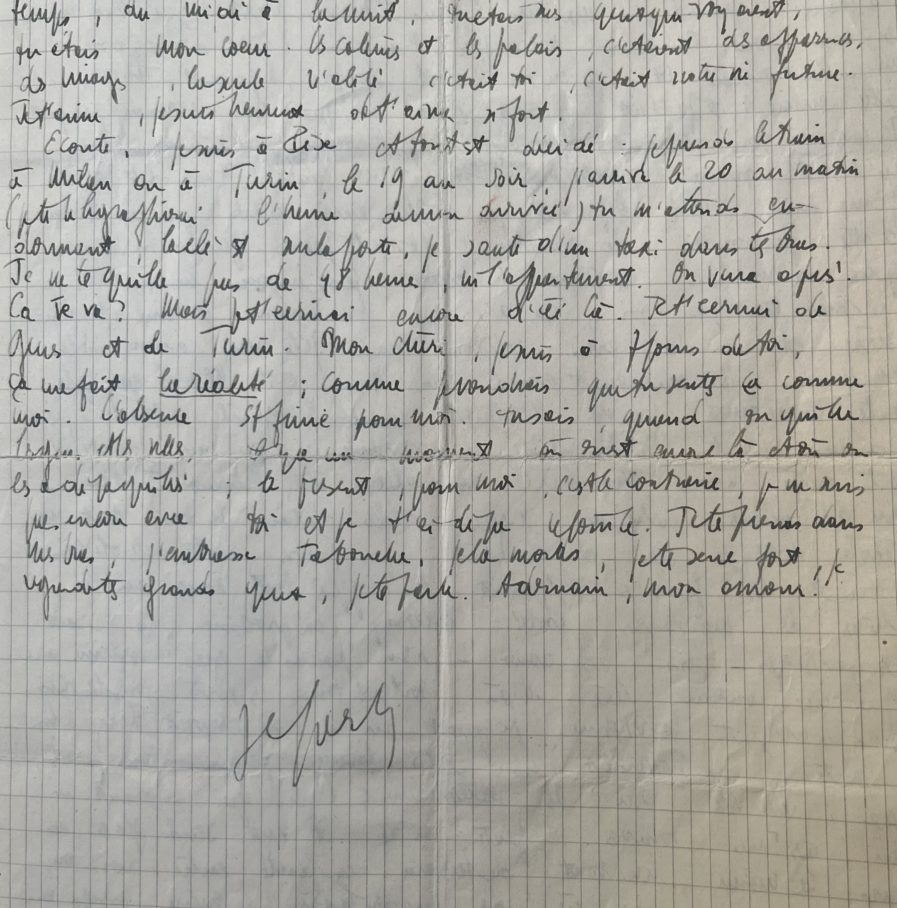 temps, du midi à la nuit, tu étais mes yeux qui voyaient,
tu étais mon coeur. Les collines et les palais, c'étaient des apparences,
des images, la seule réalité c'était toi, c'était notre vie future.
Je t'aime, je suis heureux et t'aime si fort.
Ecoute, je suis à Pise et tout est décidé : je prends le train
à Milan ou à Turin, le 19 au soir, j'arrive le 20 au matin
(je télégraphierai l'heure d'arrivée) tu m'attends en
dormant, la clé est sur la porte, je saute d'un taxi dans tes bras.
Je ne te quitte pas de 48 heures, ni l'appartement. On verra après.
Ca te va? Mais je t'écrirai encore d'ici là. Je t'écrirai de
et de Turin. Mon chéri, je suis à 7 jours de toi,
ça me fait la réalité ; comme je voudrais que tu sentes ça comme
moi. L'absence est finie pour moi. tu sais, quand on quitte
il y a un moment où on est encore là et où on
les a déjà quittés ; le présent, pour moi, c'est le contraire, je ne suis
pas encore avec toi et je t'ai déjà. Je te prends dans
mes bras, j'embrasse ta bouche, je la mords, je te serre fort, je
regarde tes grands yeux, je te parle. A demain, mon amour!